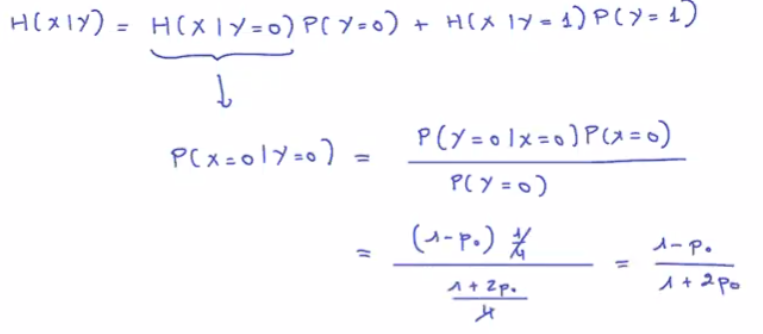 H(X|Y) = H(X|Y=0)P(Y=0) + H(X|Y=1)P(Y=1)
↓
P(X=0|Y=0) = P(Y=0|X=0)P(X=0) / P(Y=0)
= (1-p₀) 1/4 / (1+2p₀)/4 = 1-p₀ / 1+2p₀